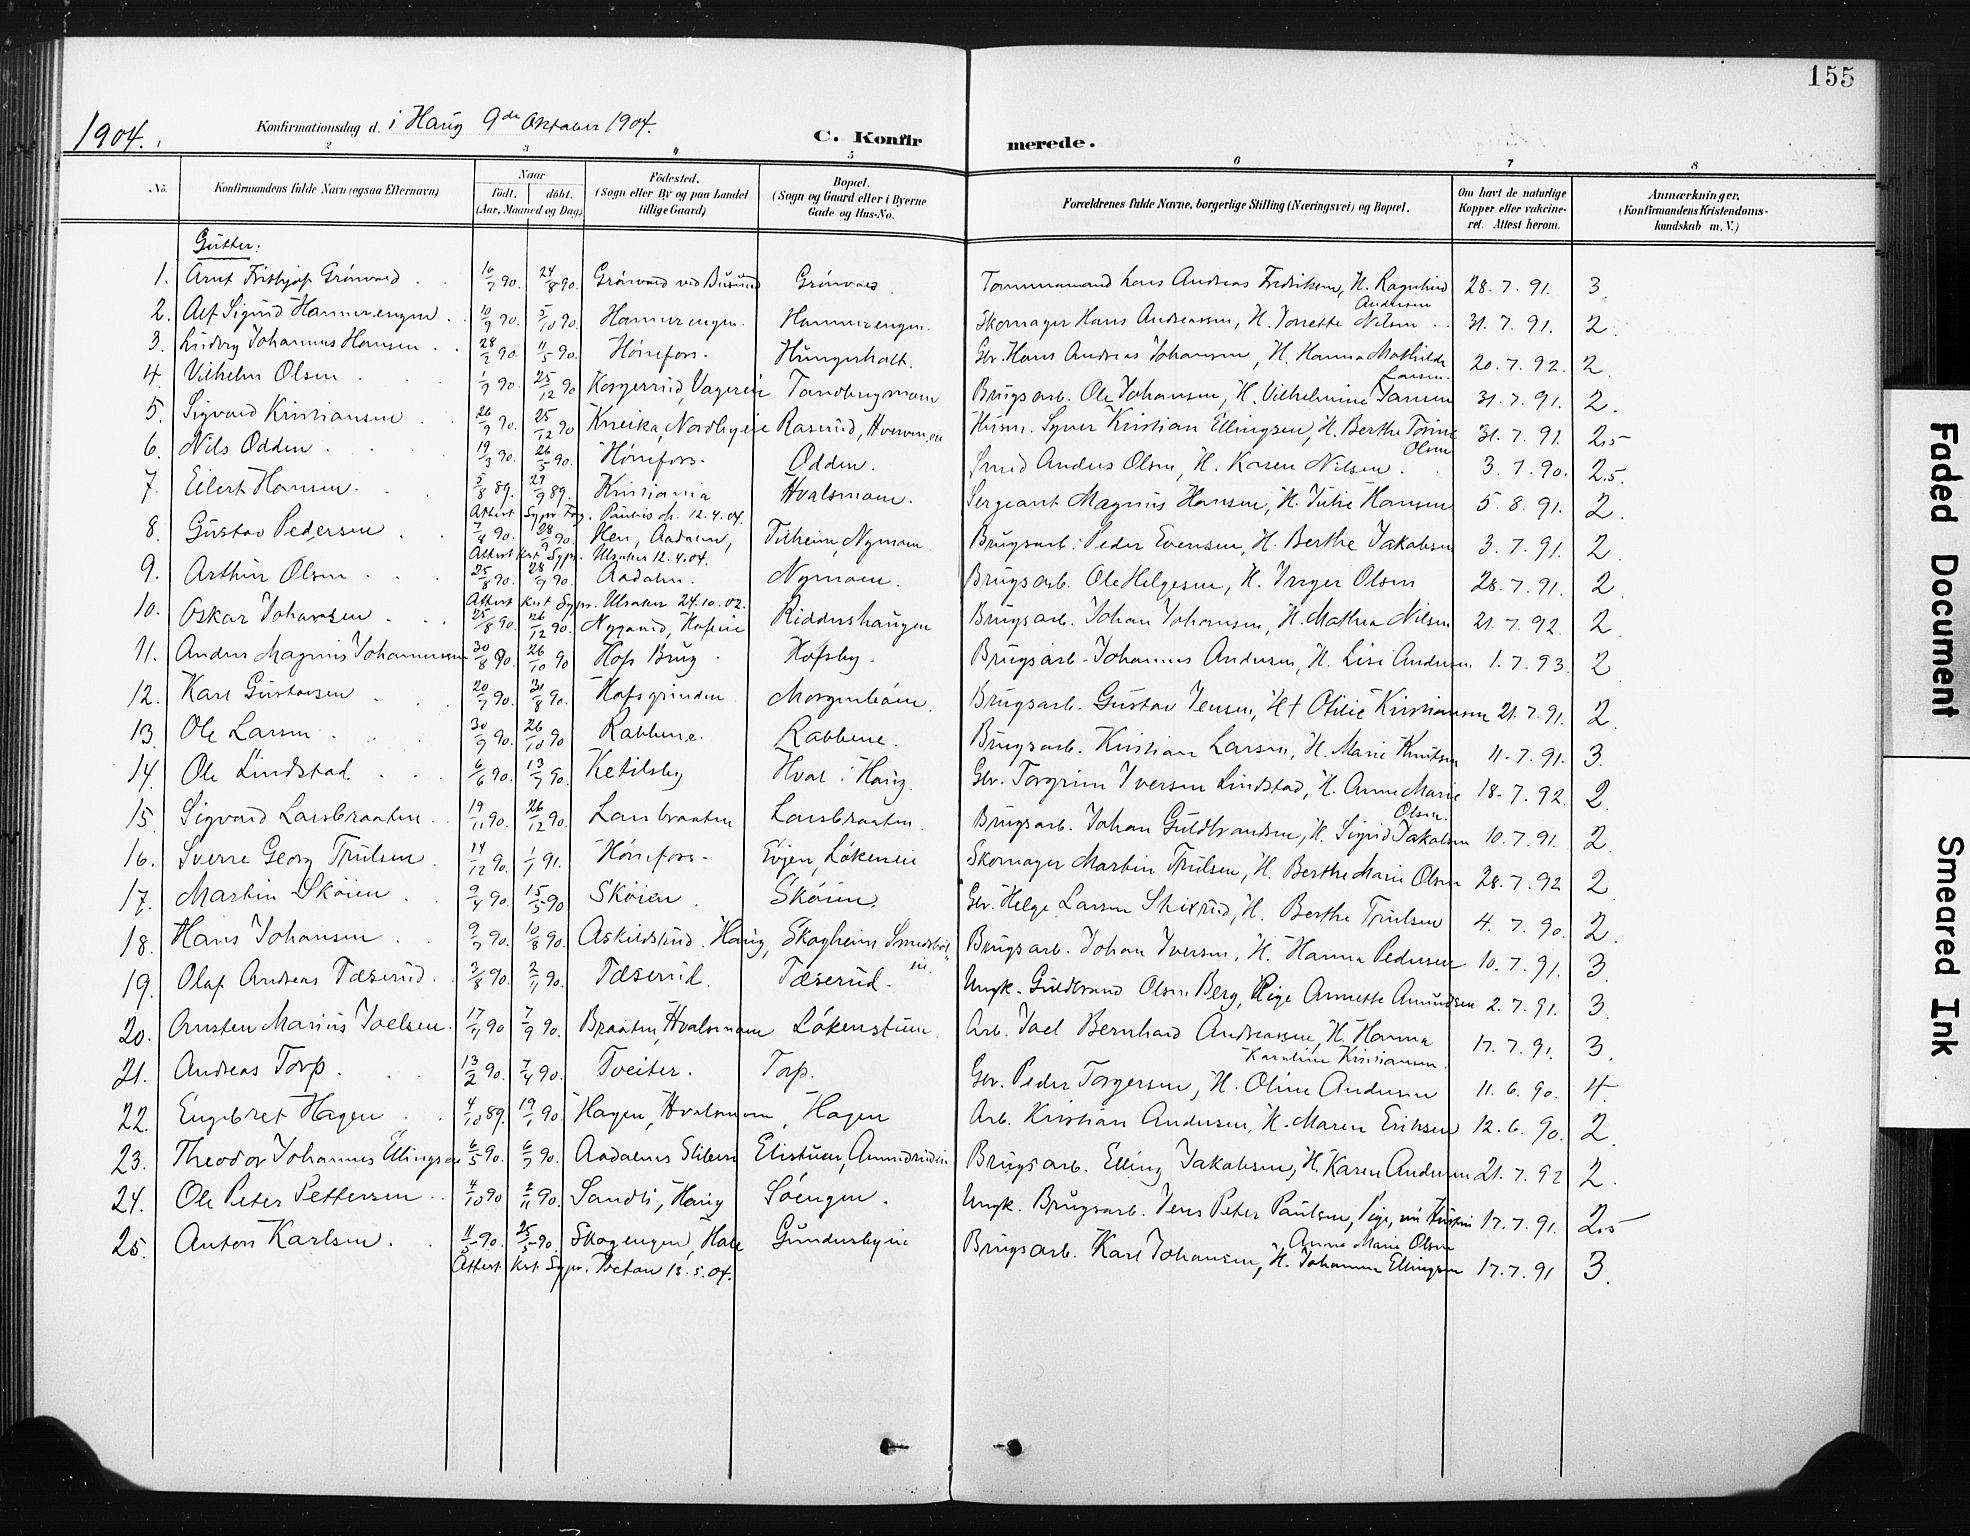 155
1904.
Konfirmationsdag d. i Haug 9de Oktober 1904.
C. Konfirmerede.
2 3 4 5 6 7 8
No. Konfirmandens fulde Navn (ogsaa Efternavn) Naar født. døbt. (Aar, Maaned og Dag) Födested. (Sogn eller By og paa Landet tillige Gaard) Bopæl. (Sogn og Gaard eller i Byerne Gade og Hus-No. Forældrenes fulde Navne, borgerlige Stilling (Næringsvei) og Bopæl. Om havt de naturlige Kopper eller vakcineret. Attest herom. Anmærkninger. (Konfirmandens Kristendomskundskab m. V.)
Gutter:
1. Arnt Frithjof Grönvold 16/7 90. 24/8 90. Grönvold ved Busund Grönvold Andreas Fredriksen, H. Ragnhild Andersen 28. 7. 91. 3.
2. Alf Sigurd Hammerengen 10/9 90. 5/10 90. Hammerengen. Hammerengen. Skomager Hans Andreassen, H. Jonette Nilsen 31. 7. 91. 2.
3. Ludvig Johannes Hansen 28/2 90. 11/5 90. Hönefos. Hungerholt. Gbr. Hans Andreas Johansen, H. Hanna Mathilde Larsen. 20. 7. 92. 2.
4. Vilhelm Olsen 1/9 90. 25/12 90 Korgerud, Vagereie Tandbergmoen Brugsarb. Ole Johansen, H. Vilhelmine Jansen 31. 7. 91. 2.
5. Sigvard Kristiansen 26/9 90. 25/12 90 Kneika, Nordbyeie Raserud, Husm. Syver Kristian Ellingsen, H. Berthe Torine Olsen 31. 7. 91. 2.5
6. Nils Odden 19/3 90. 26/5 90. Hönefos. Odden. Smed Anders Olsen, H. Karen Nilsen. 3. 7. 90. 2.5.
7. Eilert Hansen. 5/8 89. 29/9 89. Kristiania Hvalsmoen. Sergeant Magnus Hansen, H. Julie Hansen 5. 8. 91. 2.
Attest Sgpr. Paulus 12. 4. 04.
8. Gustav Pedersen 7/4 90. 28/9 90. Hen, Aadalen, Tilheim, Nymoen Brugsarb: Peder Evensen, H. Berthe Jakobsen 3. 7. 91. 2.
Attest Kst Sgpr. Ullensaker 12. 4. 04.
9. Arthur Olsen 25/8 90. 28/9 90. Aadalen. Nymoen. Brugsarb. Ole Helgesen, H. Inger Olsen 28. 7. 91. 2
Attest Kst Sgpr. 24. 10. 02.
10. Oskar Johansen 25/8 90. 26/12 90. Nygaard, Hofeie Riddershaugen Brugsarb. Johan Johansen, H. Mathea Nilsen 21. 7. 92. 2
11. Anders Magnus Johannesen 30/8 90. 26/10 90 Hofs Brug. Hofsby. Brugsarb. Johannes Andersen, H. Lise Andersen 1. 7. 93. 2
12. Karl Gustavsen 20/7 90. 31/8 90. Hofsgrinden Morgenbøen. Brugsarb. Gustav Jensen, H † Otilie Kristiansen 21. 7. 91. 2.
13. Ole Larsen 30/9 90. 26/10 90 Rabbene. Rabbene. Brugsarb. Kristian Larsen, H. Marie Knutsen 11. 7. 91. 3.
14. Ole Lindstad 6/6 90. 13/7 90. Ketilsby Hval i Haug. Gbr. Torgrim Iversen Lindstad, H. Anne Marie Olsen. 18. 7. 92. 2.
15. Sigvard Larsbraaten 19/11 90. 26/12 90. Larsbraaten Larsbraaten. Brugsarb. Johan Guldbrandsen, H. Sigrid Jakobsen 10. 7. 91. 2.
16. Sverre Georg Trulsen 14/12 90. 1/1 91. Hönefos. Evjen, Løkeneie Skomager Martin Trulsen, H. Berthe Marie Olsen 28. 7. 92 2.
17. Martin Skøien 9/4 90. 15/5 90 Skøien. Skøien. Gbr. Helge Larsen H. Berthe Trulsen 4. 7. 90. 2.
18. Hans Johansen 9/7 90. 10/8 90. Askildsrud. Haug, Skogheim Brugsarb. Johan Iversen, H. Hanna Pedersen 10. 7. 91. 3.
19. Olaf Andreas Tæserud. 3/8 90. 2/11 90. Tæserud. Tæserud. Ungk. Guldbrand Olsen Berg, Pige Annette Amundsen 2. 7. 91. 3.
20. Arnsten Marius Joelsen. 17/7 90 7/9 90. Braaten, Hvalsmoen Løkenstuen. Arb. Joel Bernhard Andreassen, H. Hanna Karoline Kristiansen. 17. 7. 91. 3.
21. Andreas Torp. 13/2 90. 7/4 90. Tveiter. Torp. Gbr. Peder Torgersen, H. Oline Andersen 11. 6. 90. 4.
22. Engebret Hagen 4/10 89. 19/1 90. Hagen, Hvalsmoen, Hagen Arb. Kristian Andersen, H. Maren Eriksen 12. 6. 90. 2.
23. Theodor Johannes Ellingsen 6/5 90. 6/7 90. Aadalens Sliberi Elistuen, Brugsarb. Elling Jakobsen, H. Karen Andersen 21. 7. 92 2.
24. Ole Peter Pettersen 4/10 90 2/11 90. Sandli, Haug Søengen. Ungk. Brugsarb. Jens Peter Paulsen, Pige, nu Hustru Anne Marie Olsen 17. 7. 91. 2.5
25. Anton Karlsen. 11/5 90. 25/5 90. Skogengen, Hole Gundersbyeie Brugsarb. Karl Johansen, H. Johanne Ellingsen 17. 7. 91 3.
Attest Kst. Sgpr. 13. 5. 04.
Faded Document
Smeared Ink